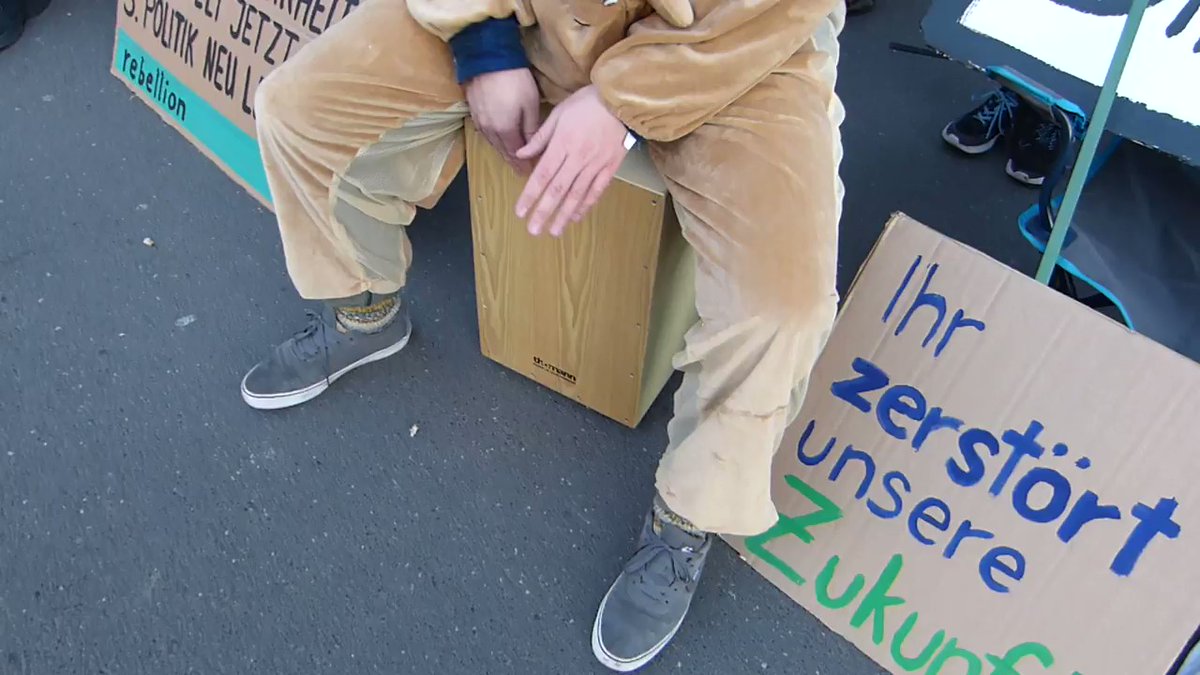 JETZT
3. POLITIK NEU
rebellion
thomann
Ihr
zerstört
unsere
Zukunft